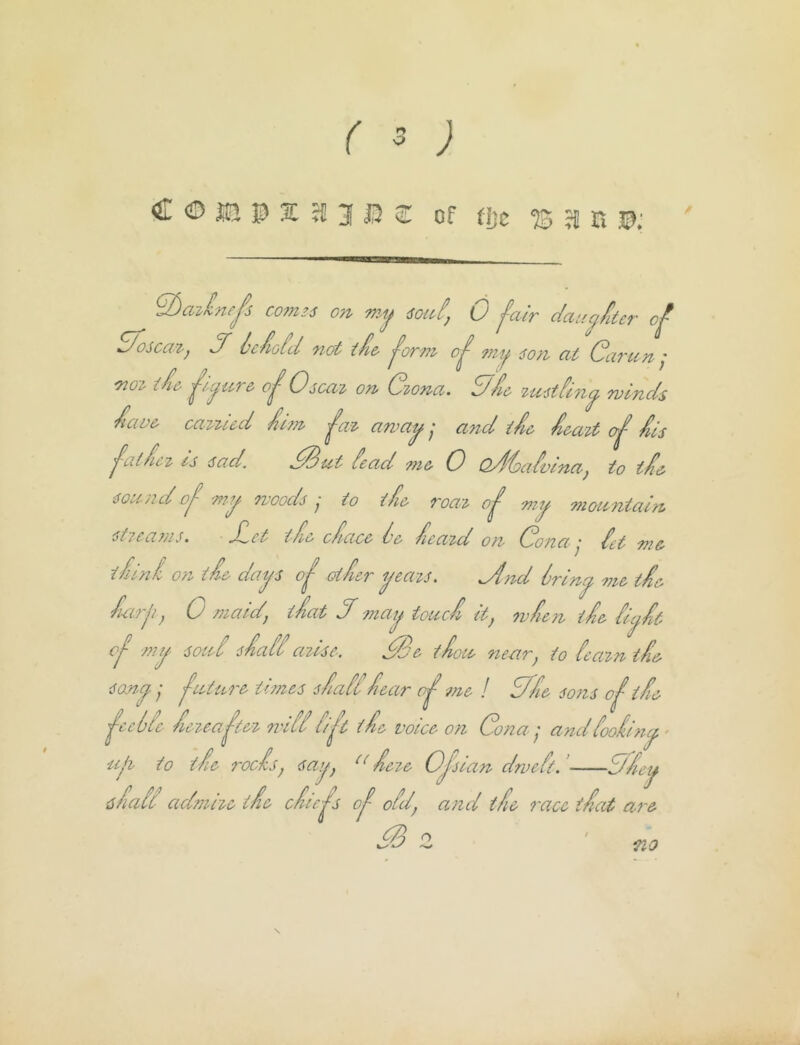 ( 3 )
COMPLAINT of the BARD:
Darkneſs comes on my soul, O fair daughter of
Toscar, I behold not the form of my son at Carun;
nor the figure of Oscar on Crona. The rustling winds
have carried him far away; and the heart of his
father is sad. But lead me O Malvina, to the
sound of my woods; to the roar of my mountain
streams. Let the chace be heard on Cona; let me
think on the days of other years. And bring me the
harp, O maid, that I may touch it, when the light
of my soul shall arise. Be thou near, to learn the
song; future times shall hear of me! The sons of the
feeble hereafter will lift the voice on Cona; and looking
up to the rocks, say, "here Oſsian dwelt.'——They
shall admire the chiefs of old, and the race that are
B 2 no